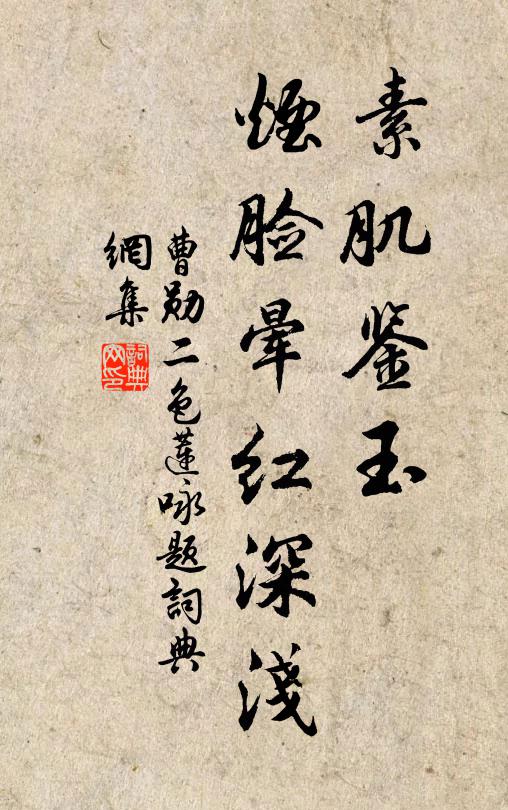 素肌鉴玉
烟脸晕红深浅
曹勋二色莲咏题词典
網集
詞典
网印